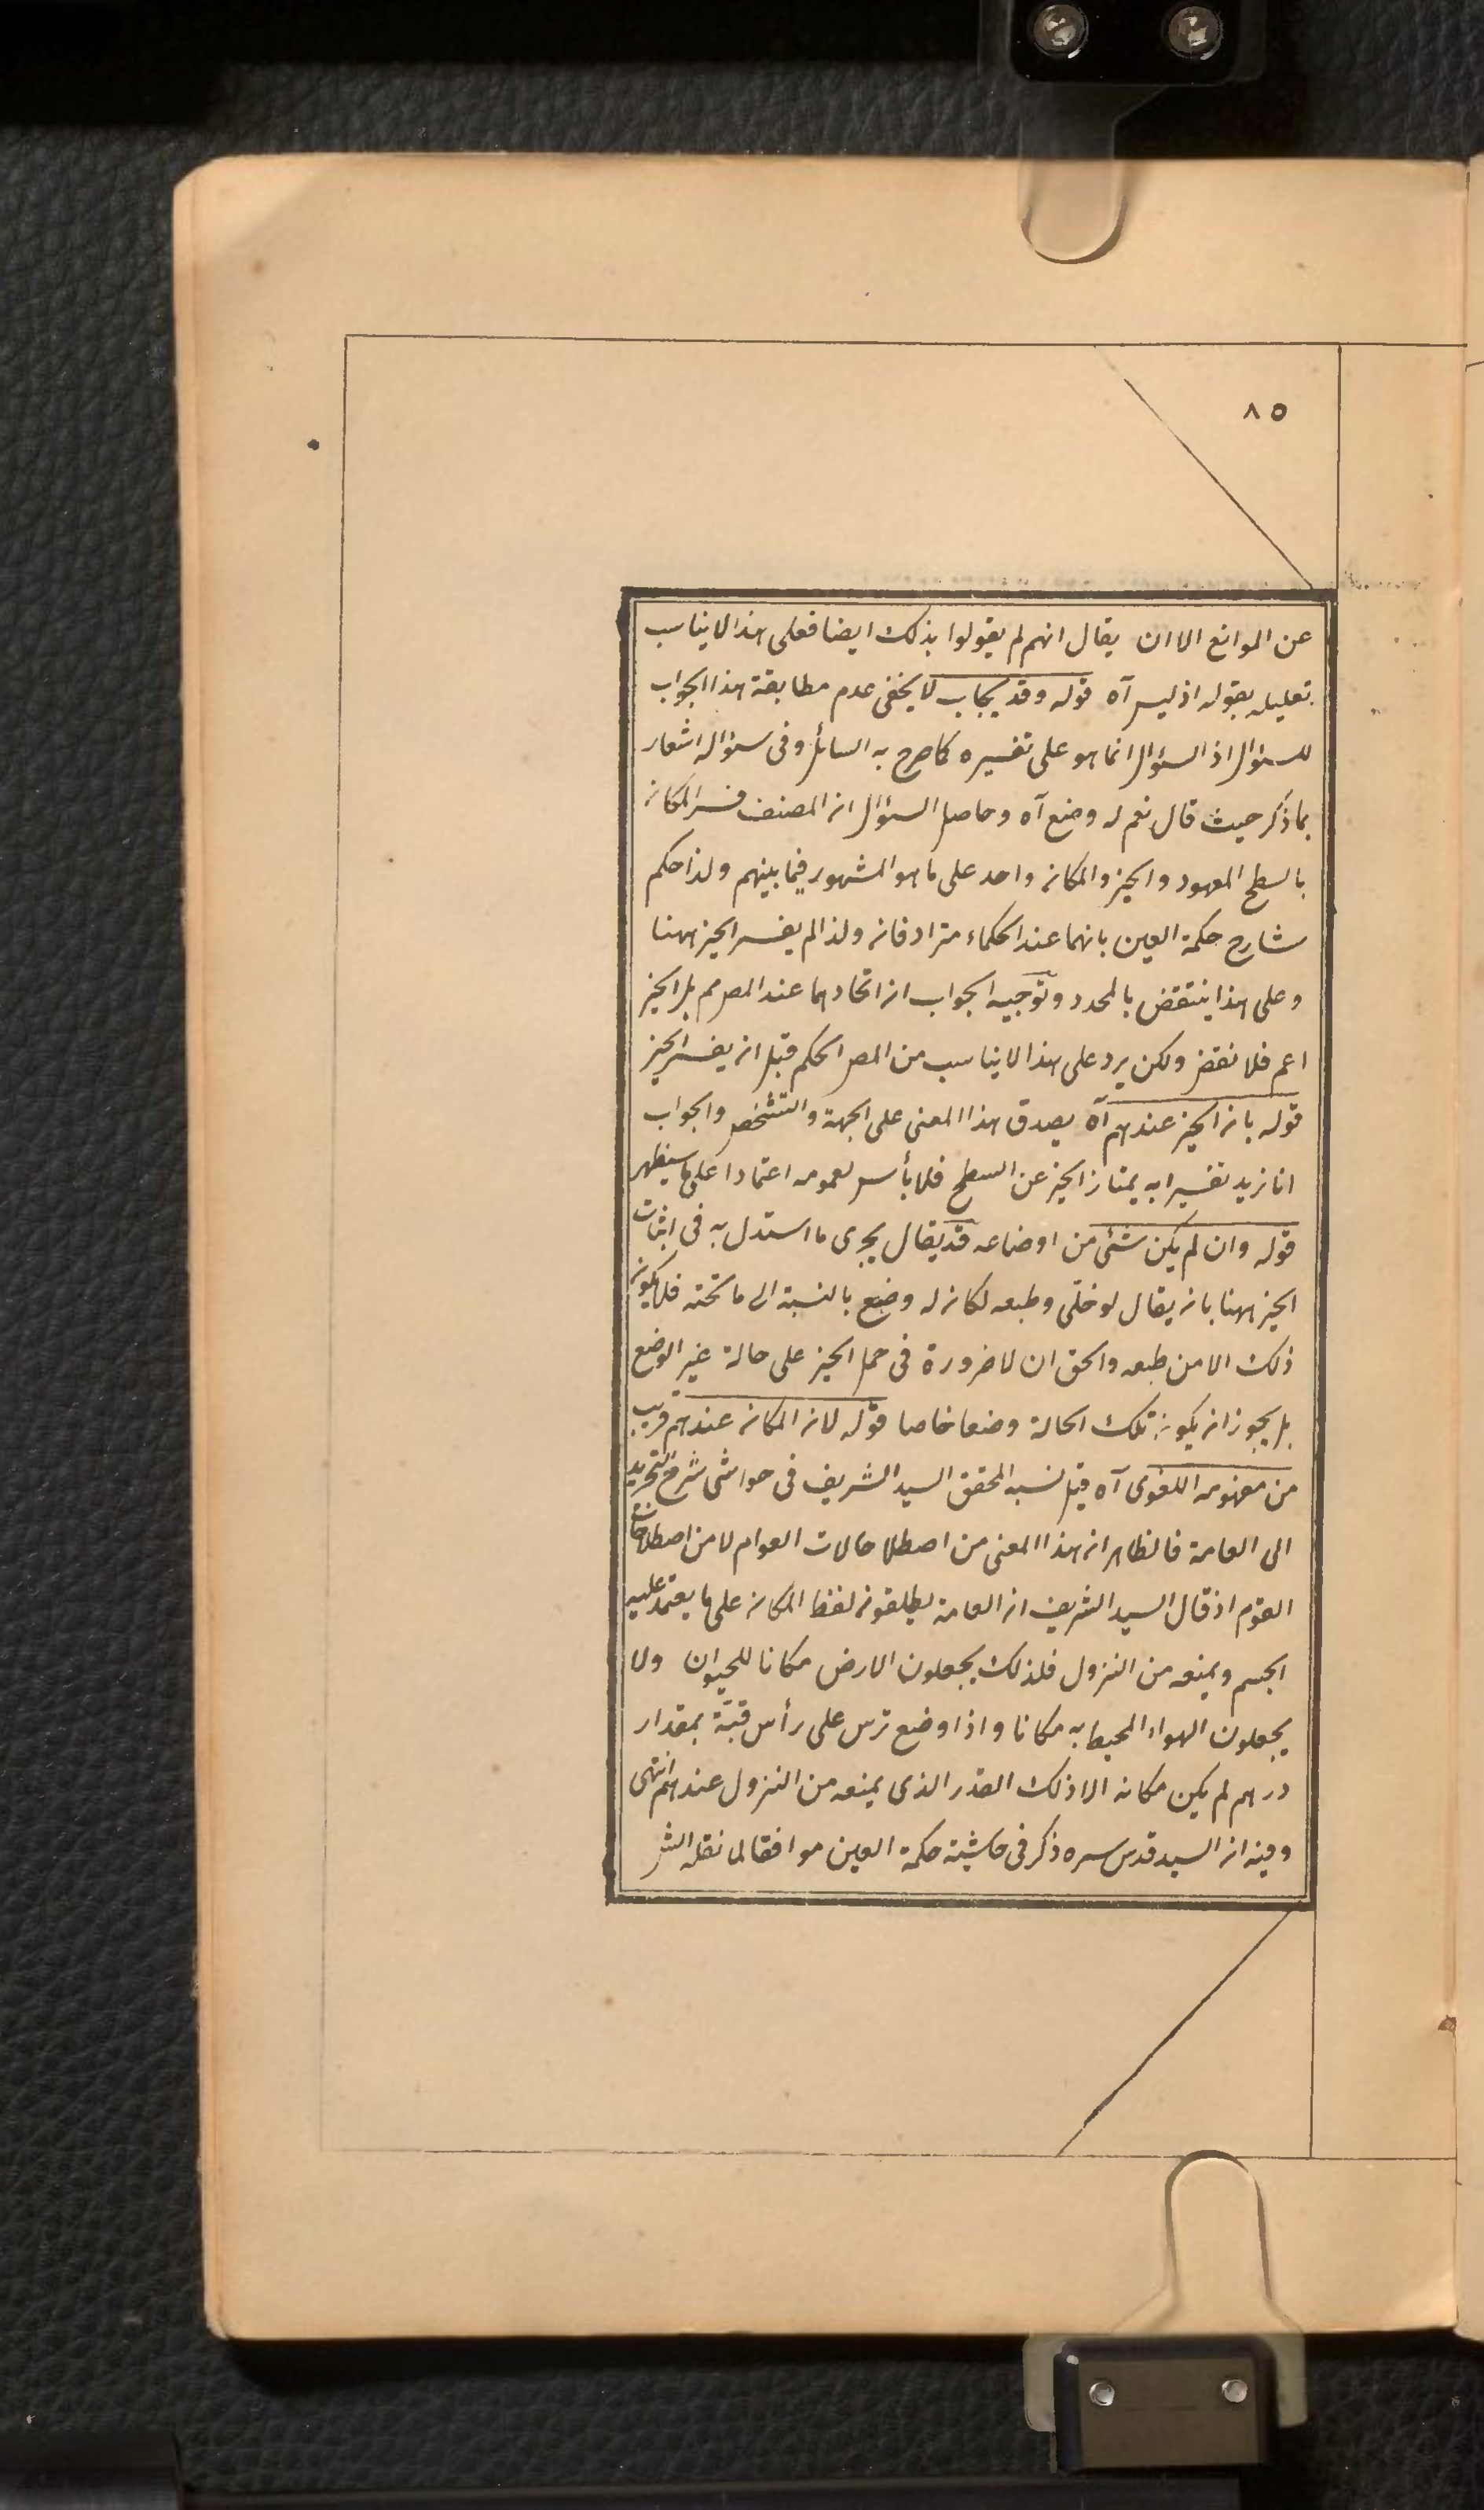 ٨٥
عن الموانع الا ان يقال انهم لم يقولوا بذلك ايضا فعلى هذا لا يناسب
تعليله بقوله اذ ليس آه قوله وقد يجاب لا يخفى عدم مطابقة هذا الجواب
للسؤال اذ السؤال انما هو على تفسيره كما صرح به السائل وفى سؤاله اشعار
بما ذكر حيث قال نعم له وضع آه وحاصل السؤال ان المصنف فسر المكان
بالسطح المعهود والحيز والمكان واحد على ما هو المشهور فيما بينهم ولذا حكم
شارح حكمة العين بانهما عند الحكماء مترادفان ولذا لم يفسر الحيز ههنا
وعلى هذا ينتقض بالمحدد وتوجيه الجواب ان اتحادهما عند المص مم بل الحيز
اعم فلا نقض ولكن يرد على هذا لا يناسب من المص الحكم قبل ان يفسر الحيز
قوله بان الحيز عندهم آه يصدق هذا المعنى على الجهة والتشخص والجواب
انا نريد تفسيرا به يمتاز الحيز عن السطح فلا بأس لعمومه اعتمادا على ما سيظهر
قوله وان لم يكن شئ من اوضاعه قد يقال يجرى ما استدل به فى اثبات
الحيز ههنا بان يقال لو خلى وطبعه لكان له وضع بالنسبة الى ما تحته فلا يكون
ذلك الا من طبعه والحق ان لا ضرورة فى حمل الحيز على حالة غير الوضع
بل يجوز ان يكون تلك الحالة وضعا خاصا قوله لان المكان عندهم قريب
من مفهومه اللغوى آه قيل نسبه المحقق السيد الشريف فى حواشى شرح التجريد
الى العامة فالظاهر ان هذا المعنى من اصطلاحات العوام لا من اصطلاحات
القوم اذ قال السيد الشريف ان العامة يطلقون لفظ المكان على ما يعتمد عليه
الجسم ويمنعه من النزول فلذلك يجعلون الارض مكانا للحيوان ولا
يجعلون الهواء المحيط به مكانا واذا وضع ترس على رأس قبّة بمقدار
درهم لم يكن مكانه الا ذلك القدر الذى يمنعه من النزول عندهم انتهى
وفيه ان السيد قدس سره ذكر فى حاشية حكمة العين موافقا لما نقله الش